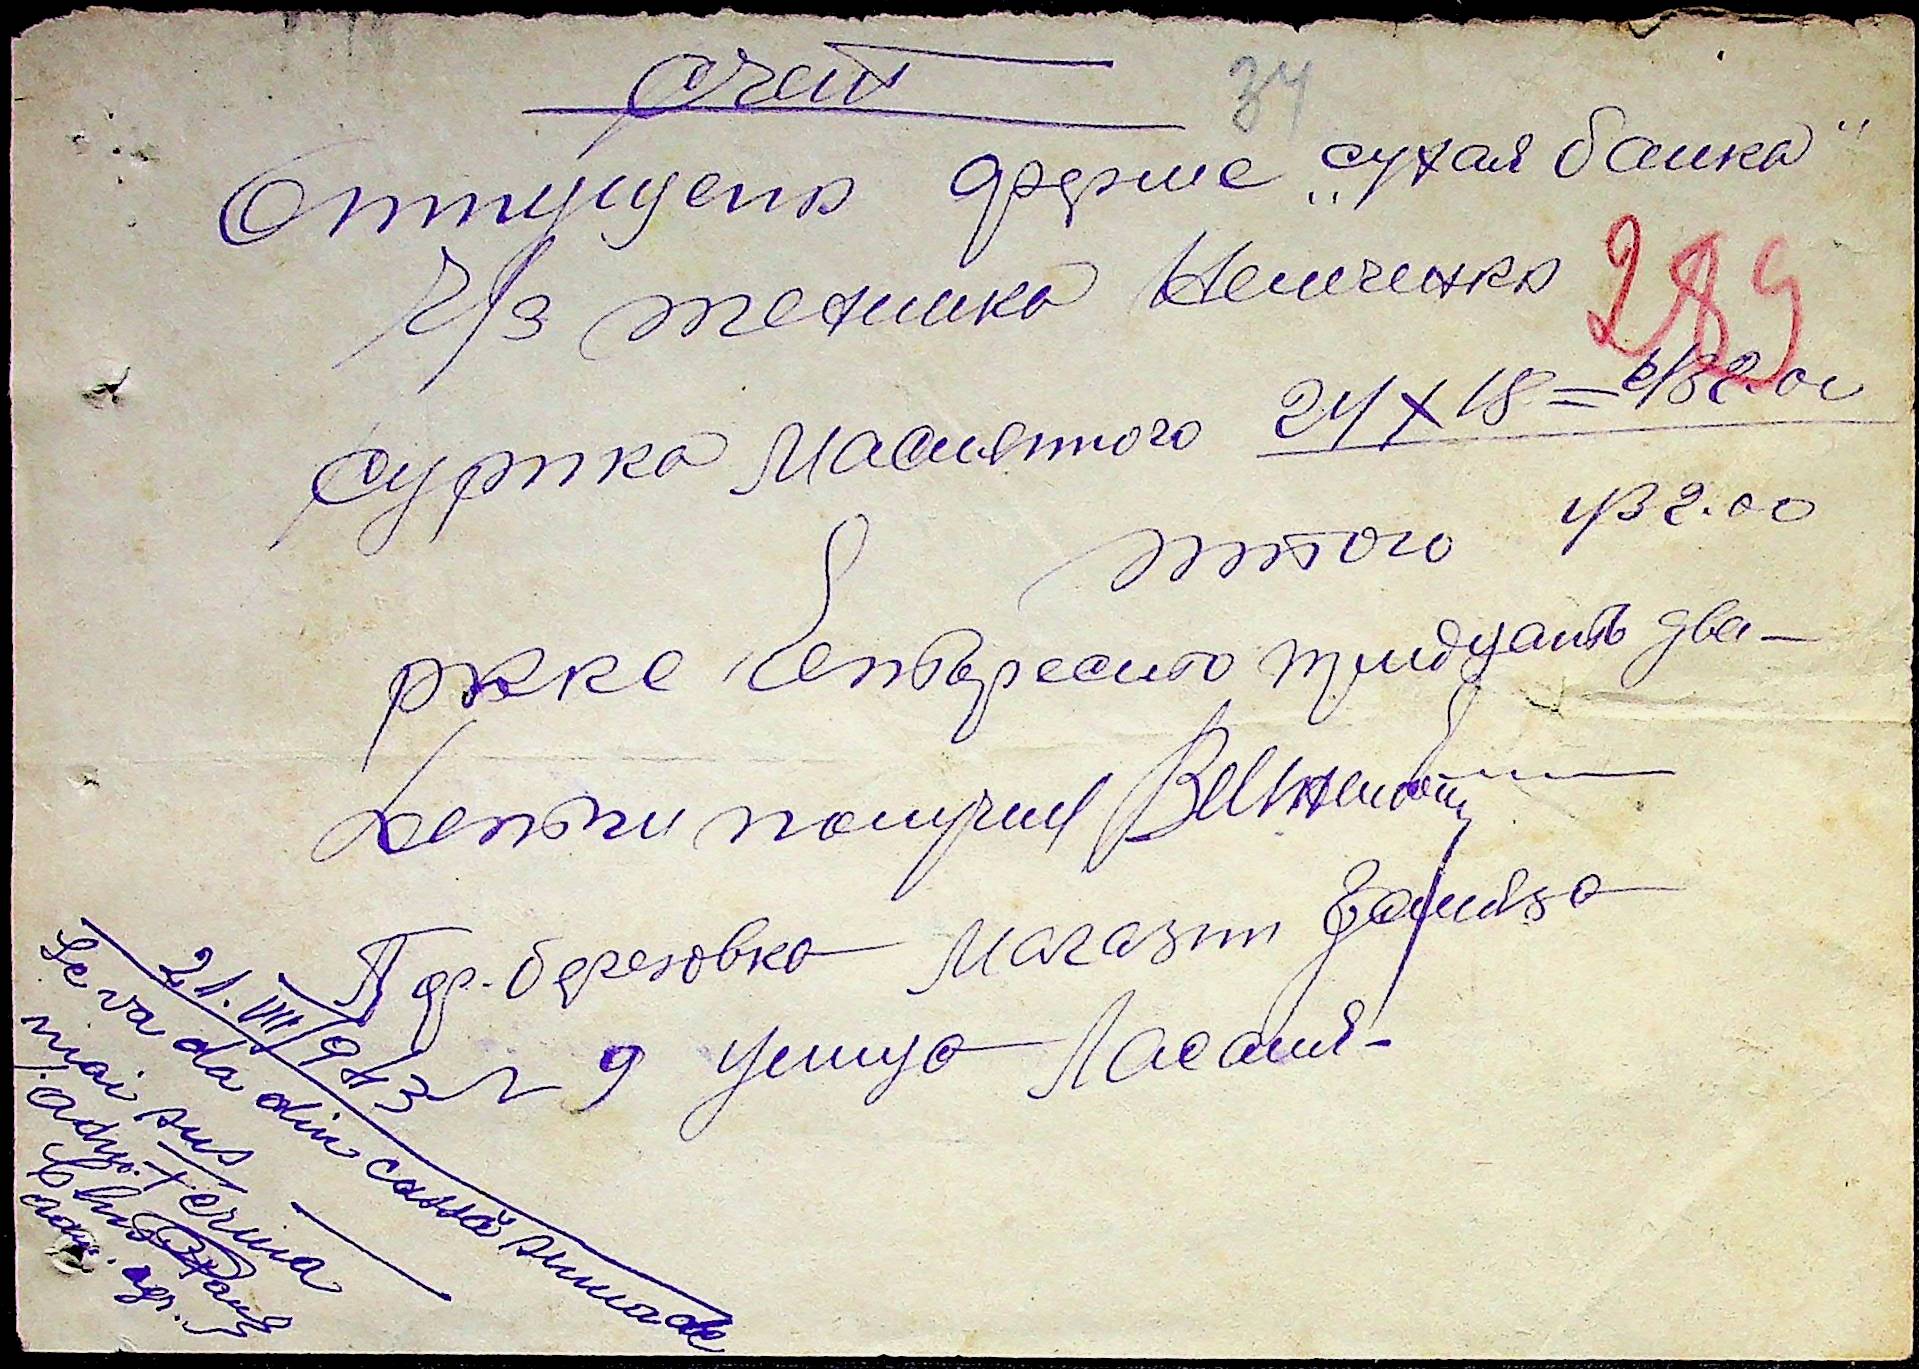 счет
34
Отпущено ферме „сухая балка"
ч/з техника Немченко
289
сурика масляного 24 x 18 = 432.00
итого 432.00
ркке Четыреста тридцать два
Деньги получил
П гр. березовка магазин
N 9 улица
21.VIII/943
Se va da din cassă suma de
mai sus
adm. ferma
agr.